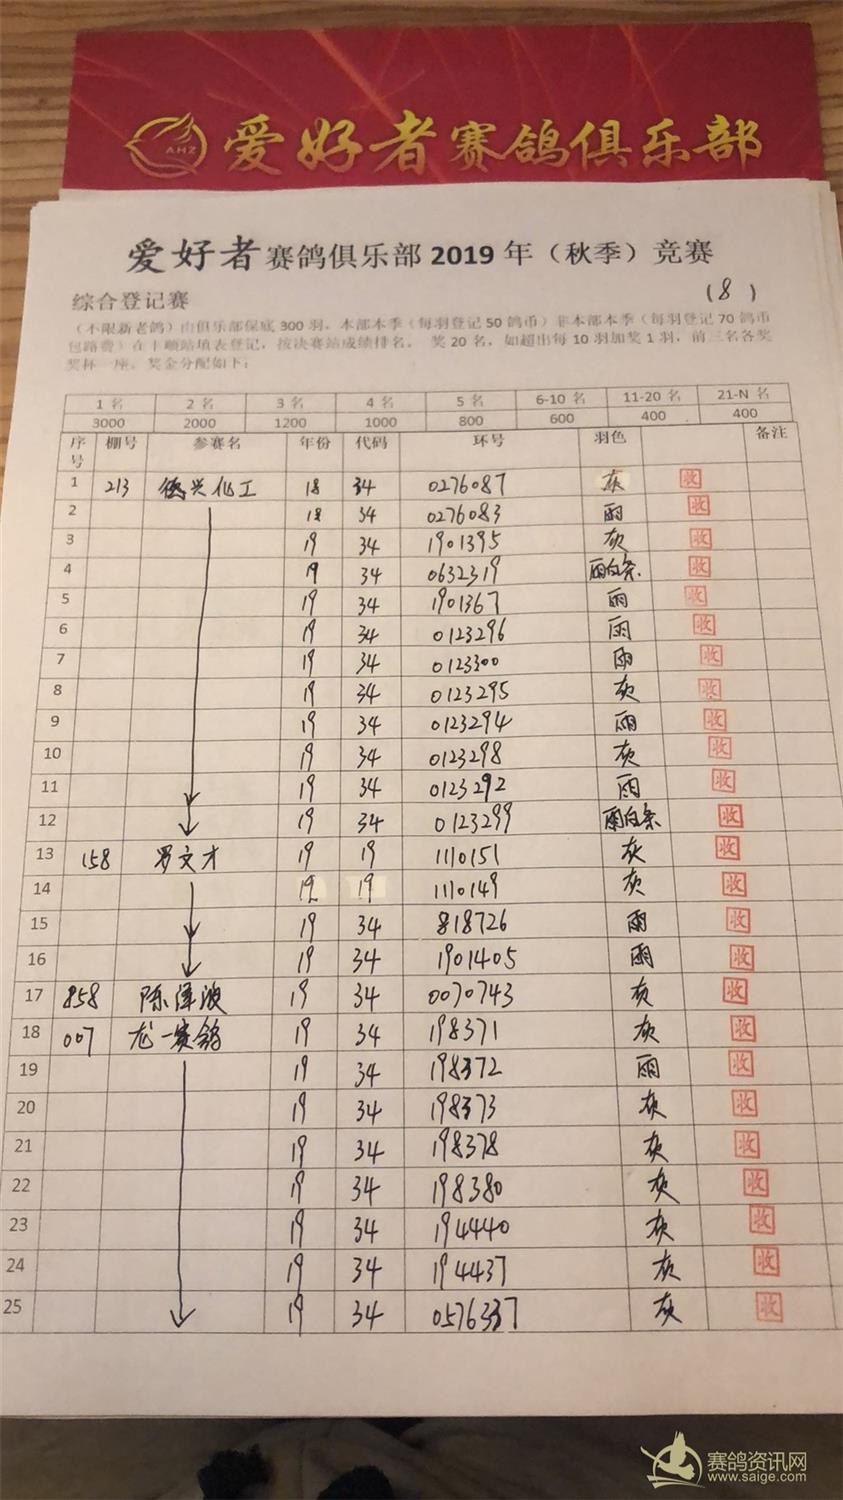 AHZ 爱好者赛鸽俱乐部
爱好者赛鸽俱乐部2019年（秋季）竞赛
综合登记赛 （8）
（不限新老鸽）由俱乐部保底300羽，本部本季（每羽登记50鸽币）非本部本季（每羽登记70鸽币
包路费）在十顺站填表登记，按决赛站成绩排名。 奖20名，如超出每10羽加奖1羽，前三名各奖
奖杯一座。奖金分配如下：
1名 2名 3名 4名 5名 6-10名 11-20名 21-N名
3000 2000 1200 1000 800 600 400 400
序号 棚号 参赛名 年份 代码 环号 羽色 备注
1 213 兴化工 18 34 0276087 灰 收
2 18 34 0276083 雨 收
3 19 34 1901395 灰 收
4 19 34 0632319 雨白条 收
5 19 34 1901367 雨 收
6 19 34 0123296 雨 收
7 19 34 0123300 雨 收
8 19 34 0123295 灰 收
9 19 34 0123294 雨 收
10 19 34 0123298 灰 收
11 19 34 0123292 雨 收
12 19 34 0123299 雨白条 收
13 158 罗文才 19 19 1110151 灰 收
14 19 19 1110149 灰 收
15 19 34 818726 雨 收
16 19 34 1901405 雨 收
17 858 陈泽波 19 34 0070743 灰 收
18 007 龙一赛鸽 19 34 198371 灰 收
19 19 34 198372 雨 收
20 19 34 198373 灰 收
21 19 34 198378 灰 收
22 19 34 198380 灰 收
23 19 34 194440 灰 收
24 19 34 194437 灰 收
25 19 34 0576337 灰 收
赛鸽资讯网
www.saige.com